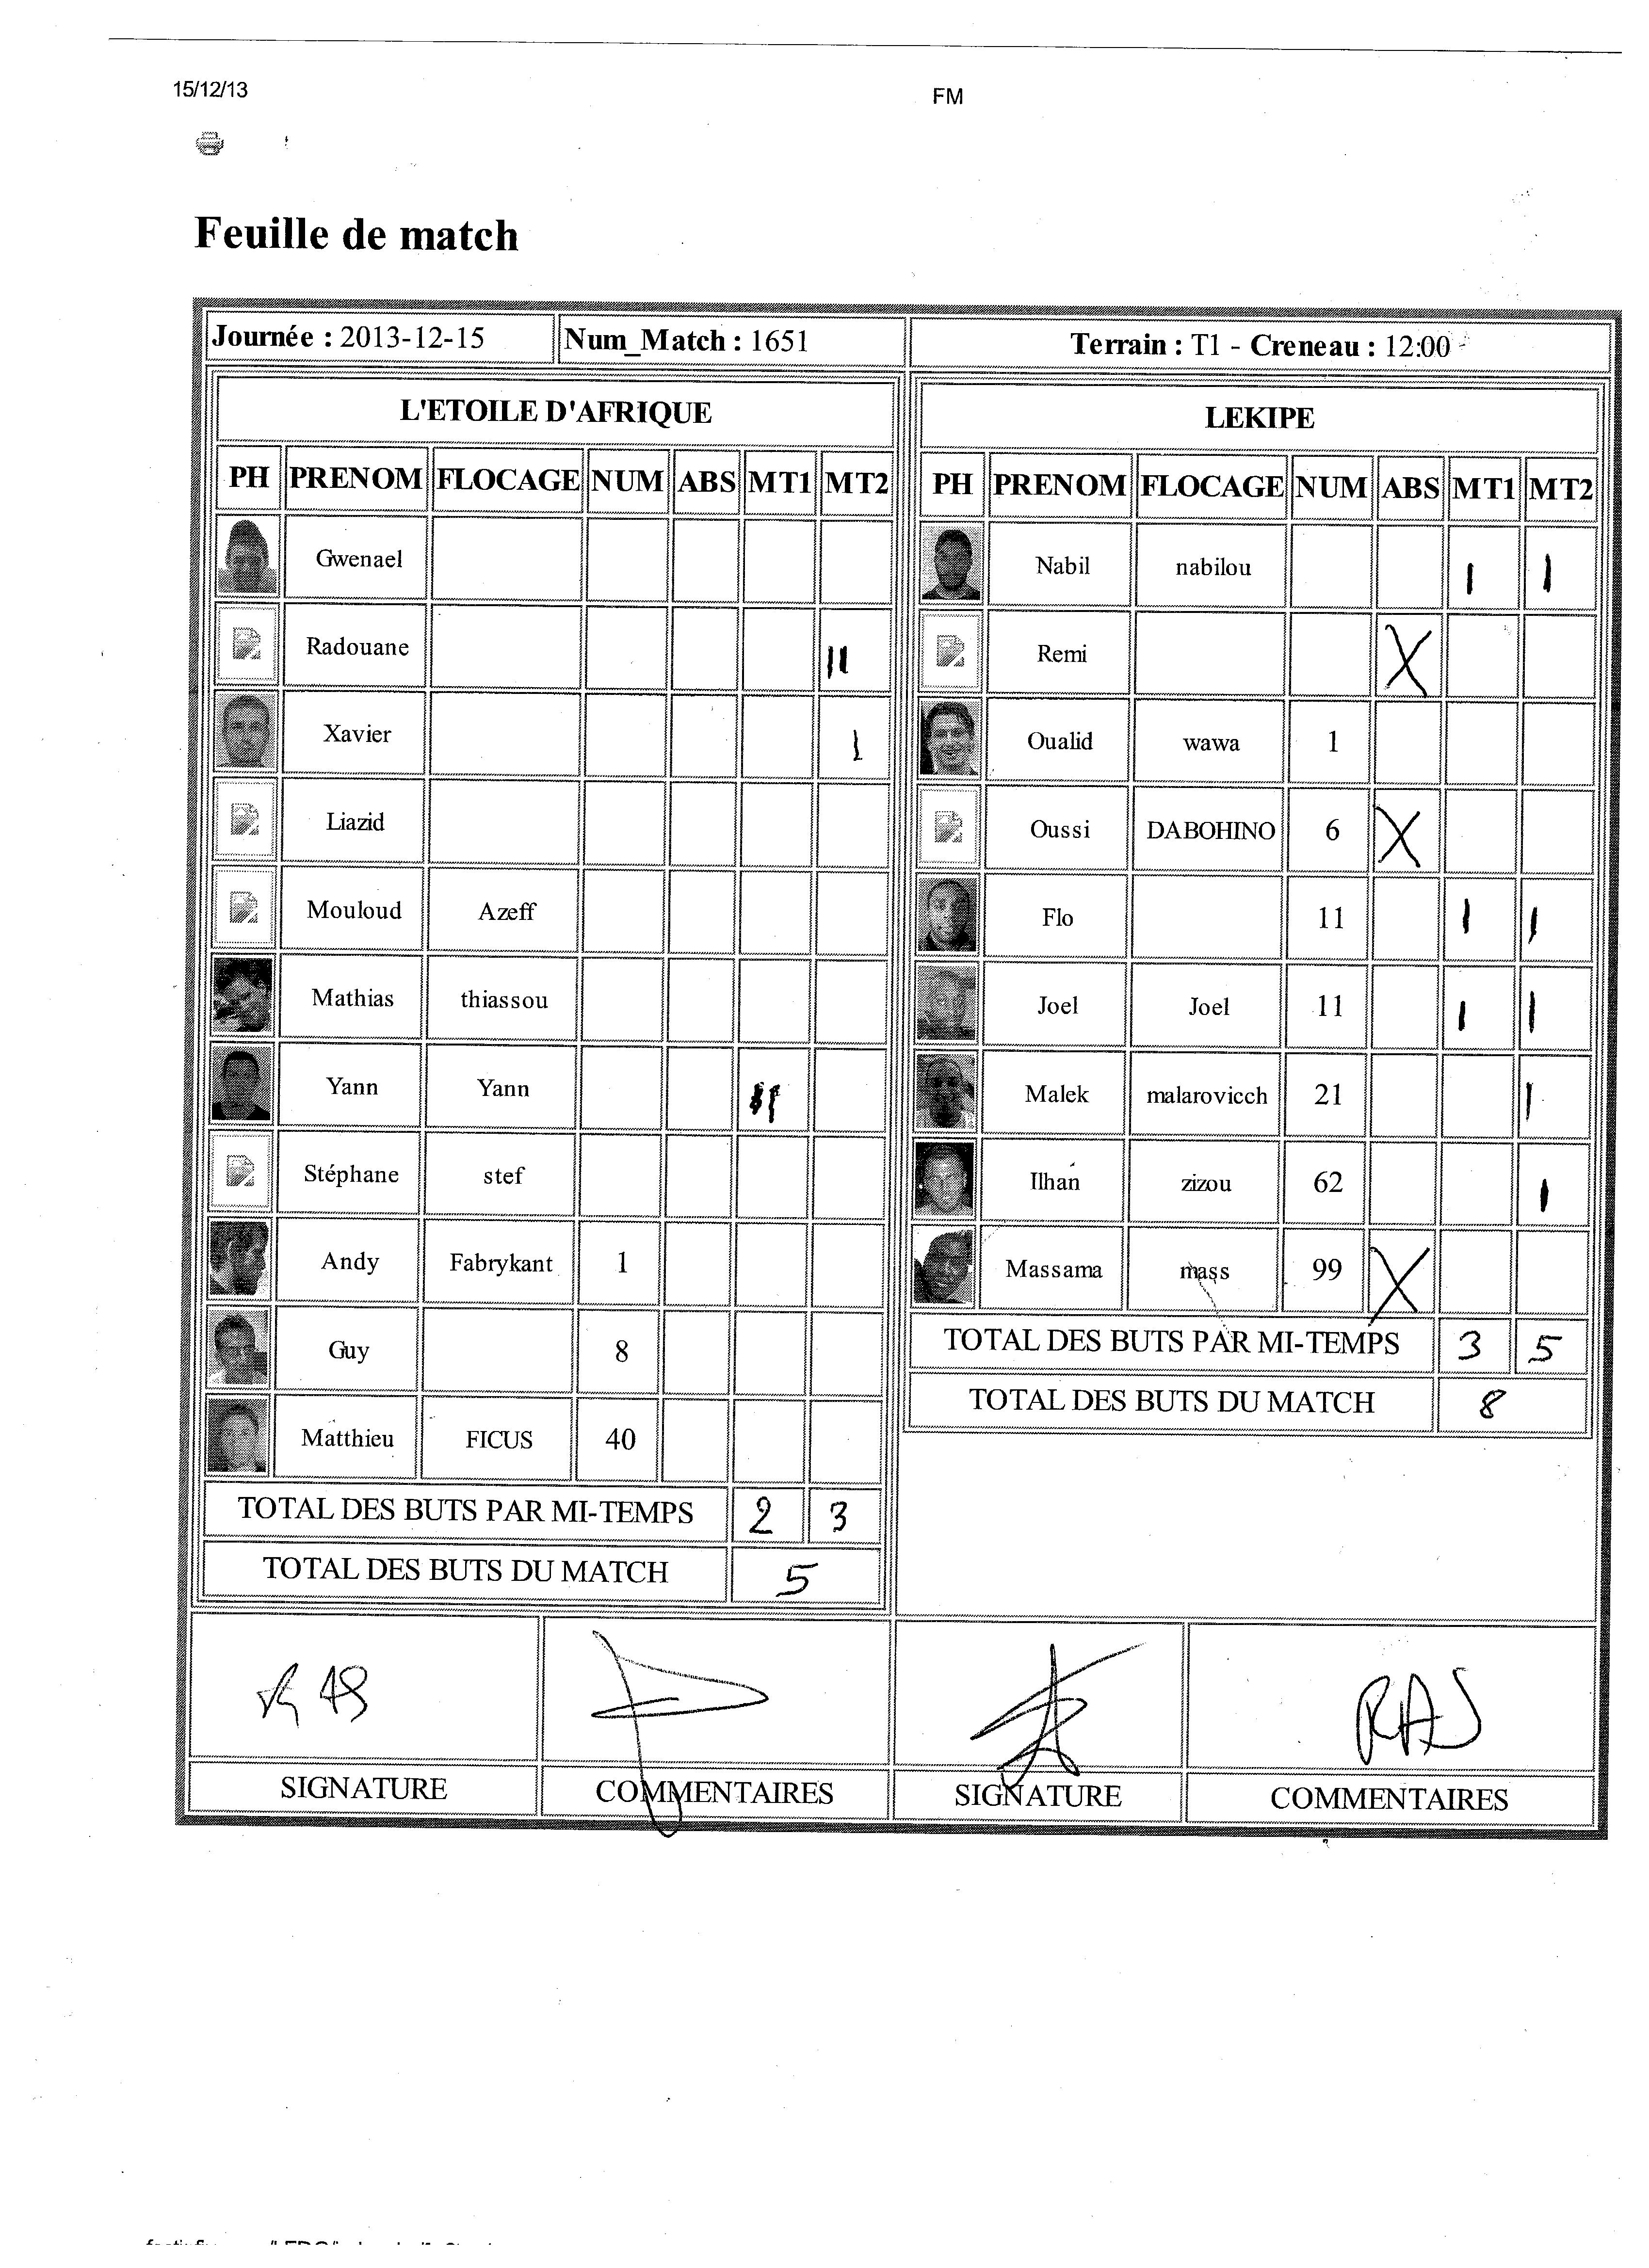 15/12/13 FM
Feuille de match
Journée : 2013-12-15 Num_Match : 1651 Terrain : T1 - Creneau : 12:00
L'ETOILE D'AFRIQUE
PH PRENOM FLOCAGE NUM ABS MT1 MT2
Gwenael
Radouane II
Xavier 1
Liazid
Mouloud Azeff
Mathias thiassou
Yann Yann
Stéphane stef
Andy Fabrykant 1
Guy 8
Matthieu FICUS 40
TOTAL DES BUTS PAR MI-TEMPS 2 3
TOTAL DES BUTS DU MATCH 5
LEKIPE
PH PRENOM FLOCAGE NUM ABS MT1 MT2
Nabil nabilou I I
Remi X
Oualid wawa 1
Oussi DABOHINO 6 X
Flo 11 I I
Joel Joel 11 I I
Malek malarovicch 21 I
Ilhan zizou 62 I
Massama mass 99 X
TOTAL DES BUTS PAR MI-TEMPS 3 5
TOTAL DES BUTS DU MATCH 8
RAS
SIGNATURE COMMENTAIRES SIGNATURE COMMENTAIRES